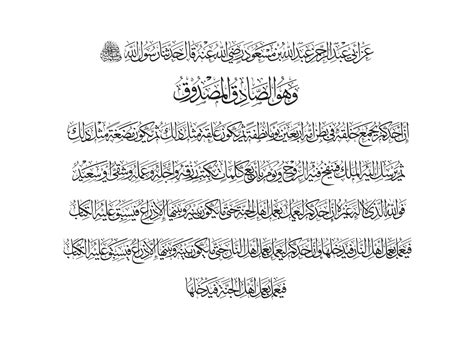 عن أبي عبد الرحمن عبد الله بن مسعود رضي الله عنه قال حدثنا رسول الله ﷺ
وهو الصادق المصدوق
إن أحدكم يجمع خلقه في بطن أمه أربعين يوما نطفة ثم يكون علقة مثل ذلك ثم يكون مضغة مثل ذلك
ثم يرسل إليه الملك فينفخ فيه الروح ويؤمر بأربع كلمات بكتب رزقه وأجله وعمله وشقي أو سعيد
فوالله الذي لا إله غيره إن أحدكم ليعمل بعمل أهل الجنة حتى ما يكون بينه وبينها إلا ذراع فيسبق عليه الكتاب
فيعمل بعمل أهل النار فيدخلها وإن أحدكم ليعمل بعمل أهل النار حتى ما يكون بينه وبينها إلا ذراع فيسبق عليه الكتاب
فيعمل بعمل أهل الجنة فيدخلها